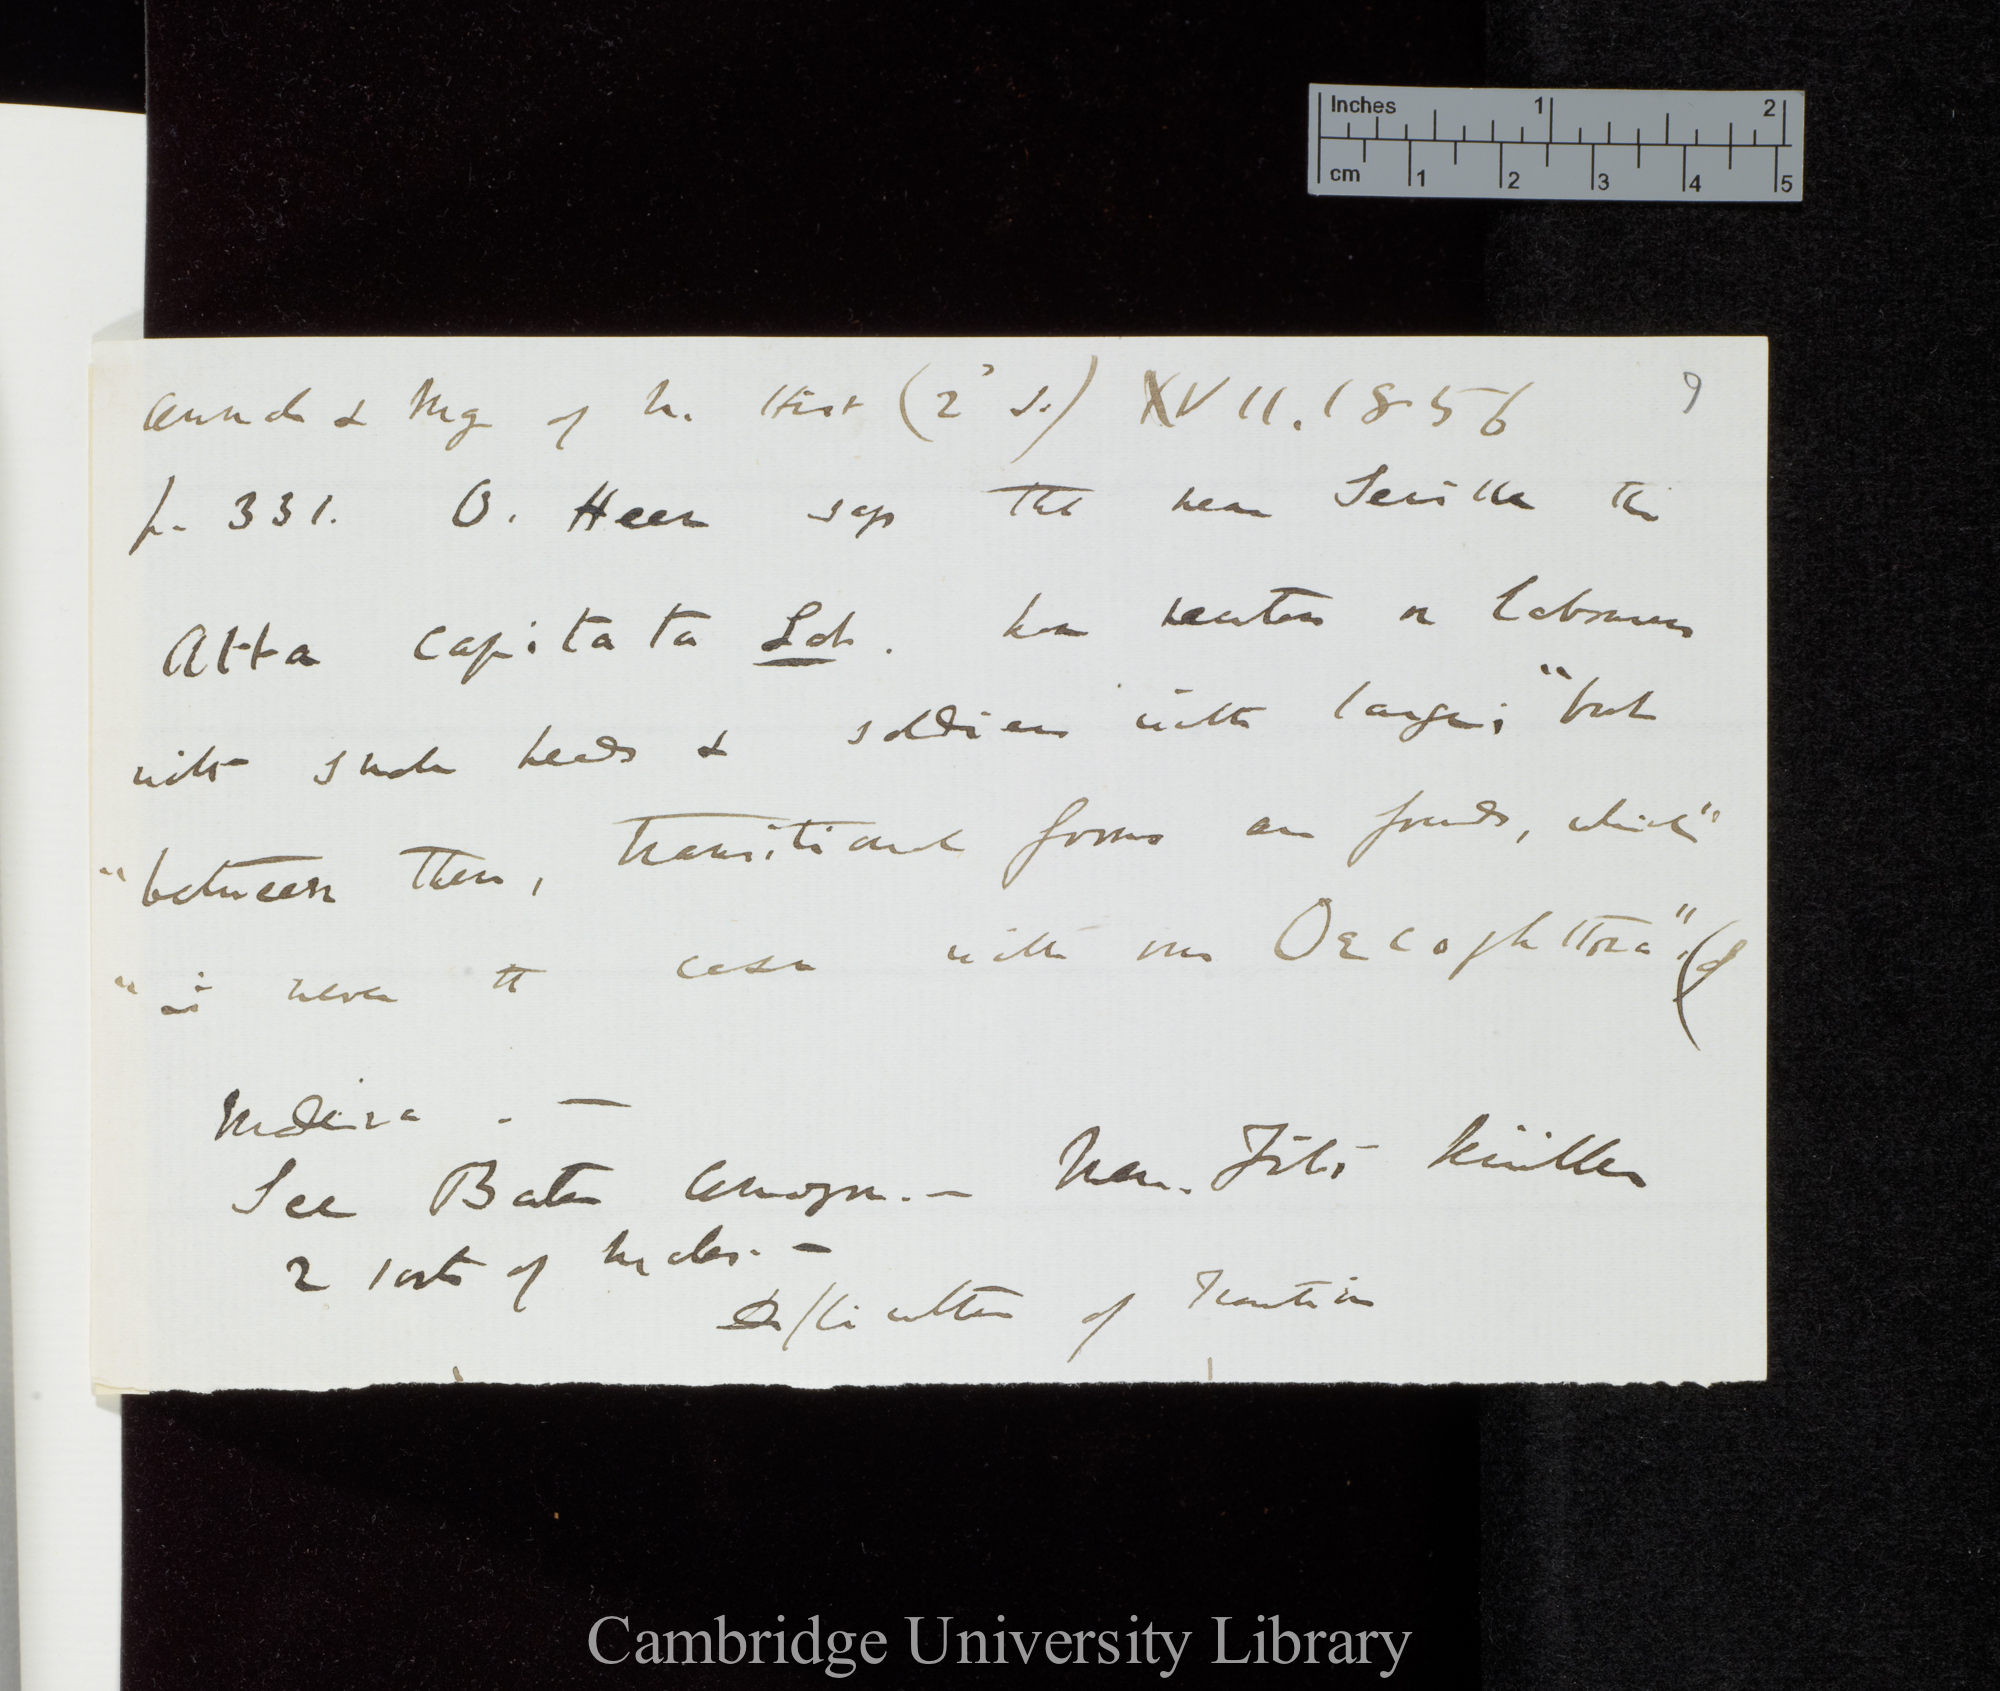 Inches 1 2
cm 1 2 3 4 5
9
Annals & Mag of N. Hist (2d s.) XVII. 1856
p. 331. O. Heer says that near Seville the
Atta capitata Latr. has neuters or labourers
with small heads & soldiers with larger; "but
"between them, transitional forms are found, which"
"is never the case with our Oecophthora". (of
Madeira. —
See Bates Amazon. — Mem. Fritz Müller
2 sorts of males. —
Difficulties of Transition
Cambridge University Library